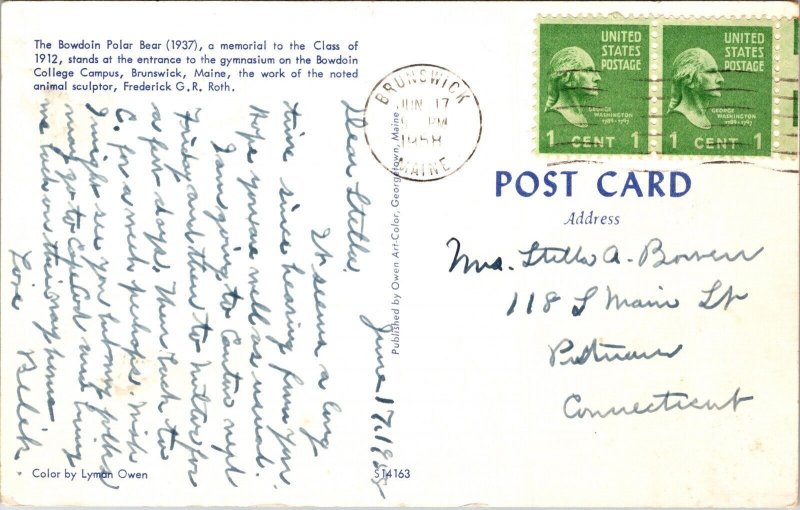 The Bowdoin Polar Bear (1937), a memorial to the Class of
1912, stands at the entrance to the gymnasium on the Bowdoin
College Campus, Brunswick, Maine, the work of the noted
animal sculptor, Frederick G. R. Roth.
BRUNSWICK
JUN 17
PM
1958
MAINE
UNITED
STATES
POSTAGE
GEORGE
WASHINGTON
1789-1797
1 CENT 1
UNITED
STATES
POSTAGE
GEORGE
WASHINGTON
1789-1797
1 CENT 1
POST CARD
Address
Mrs. Stella A. Bowen
118 S Main St
Putnam
Connecticut
Published by Owen Art-Color, Georgetown, Maine
June 17, 1958
Dear Stella.
It seems a long
time since hearing from you.
Hope you are well as usual.
I am going to Canton
Friday and then to for
a few days. Then back to
C. for a week perhaps. Wish
I might see you but my folks
may go to Cape Cod and bring
me back on their way home
Love
Color by Lyman Owen
S14163